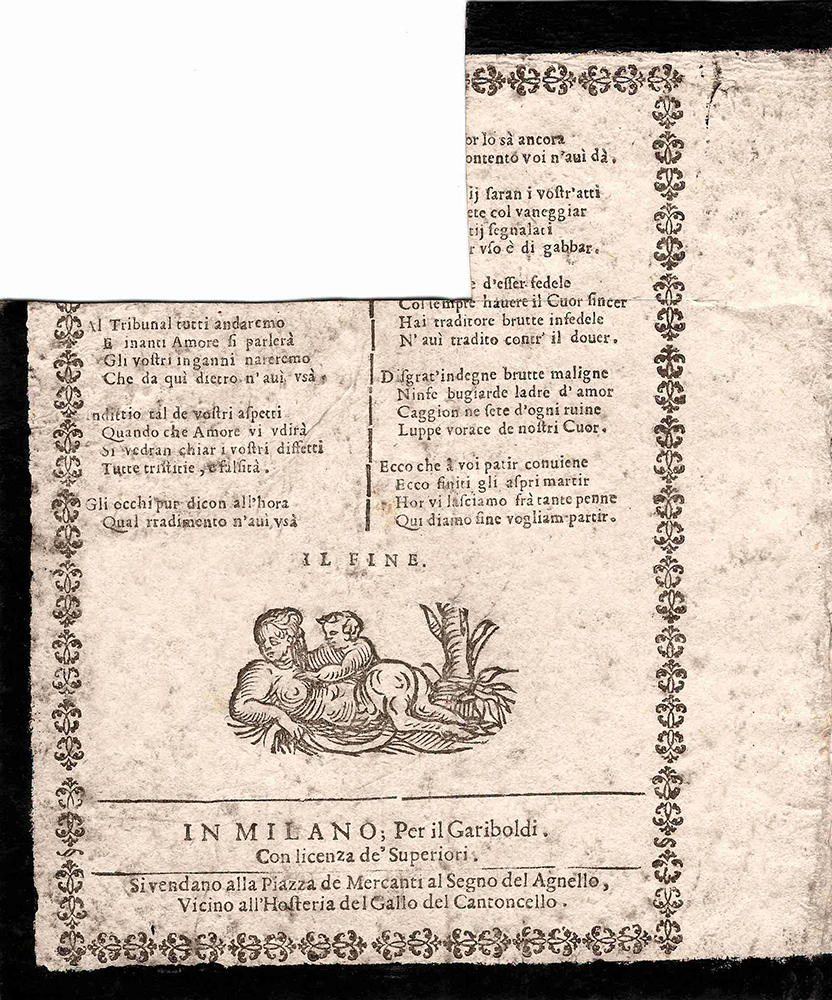 Al Tribunal tutti andaremo
E inanti Amore si parlerà
Gli vostri inganni nareremo
Che da quì dietro n'auì vsà.
Indittio tal de vostri aspetti
Quando che Amore vi vdirà
Si vedran chiar i vostri diffetti
Tutte tristitie, e falsità.
Gli occhi pur dicon all'hora
Qual rradimento n'auì vsà
or lo sà ancora
ontento voi n'auì dà.
ij saran i vostr'atti
ete col vaneggiar
tij segnalati
r vso è di gabbar.
e d'esser fedele
Col sempre hauere il Cuor sincer
Hai traditore brutte infedele
N'auì tradito contr' il douer.
Disgrat'indegne brutte maligne
Ninfe bugiarde ladre d'amor
Caggion ne sete d'ogni ruine
Luppe vorace de nostri Cuor.
Ecco che à voi patir conuiene
Ecco finiti gli aspri martir
Hor vi lasciamo frà tante penne
Qui diamo fine vogliam partir.
IL FINE.
IN MILANO; Per il Gariboldi.
Con licenza de' Superiori.
Si vendano alla Piazza de Mercanti al Segno del Agnello,
Vicino all'Hosteria del Gallo del Cantoncello.